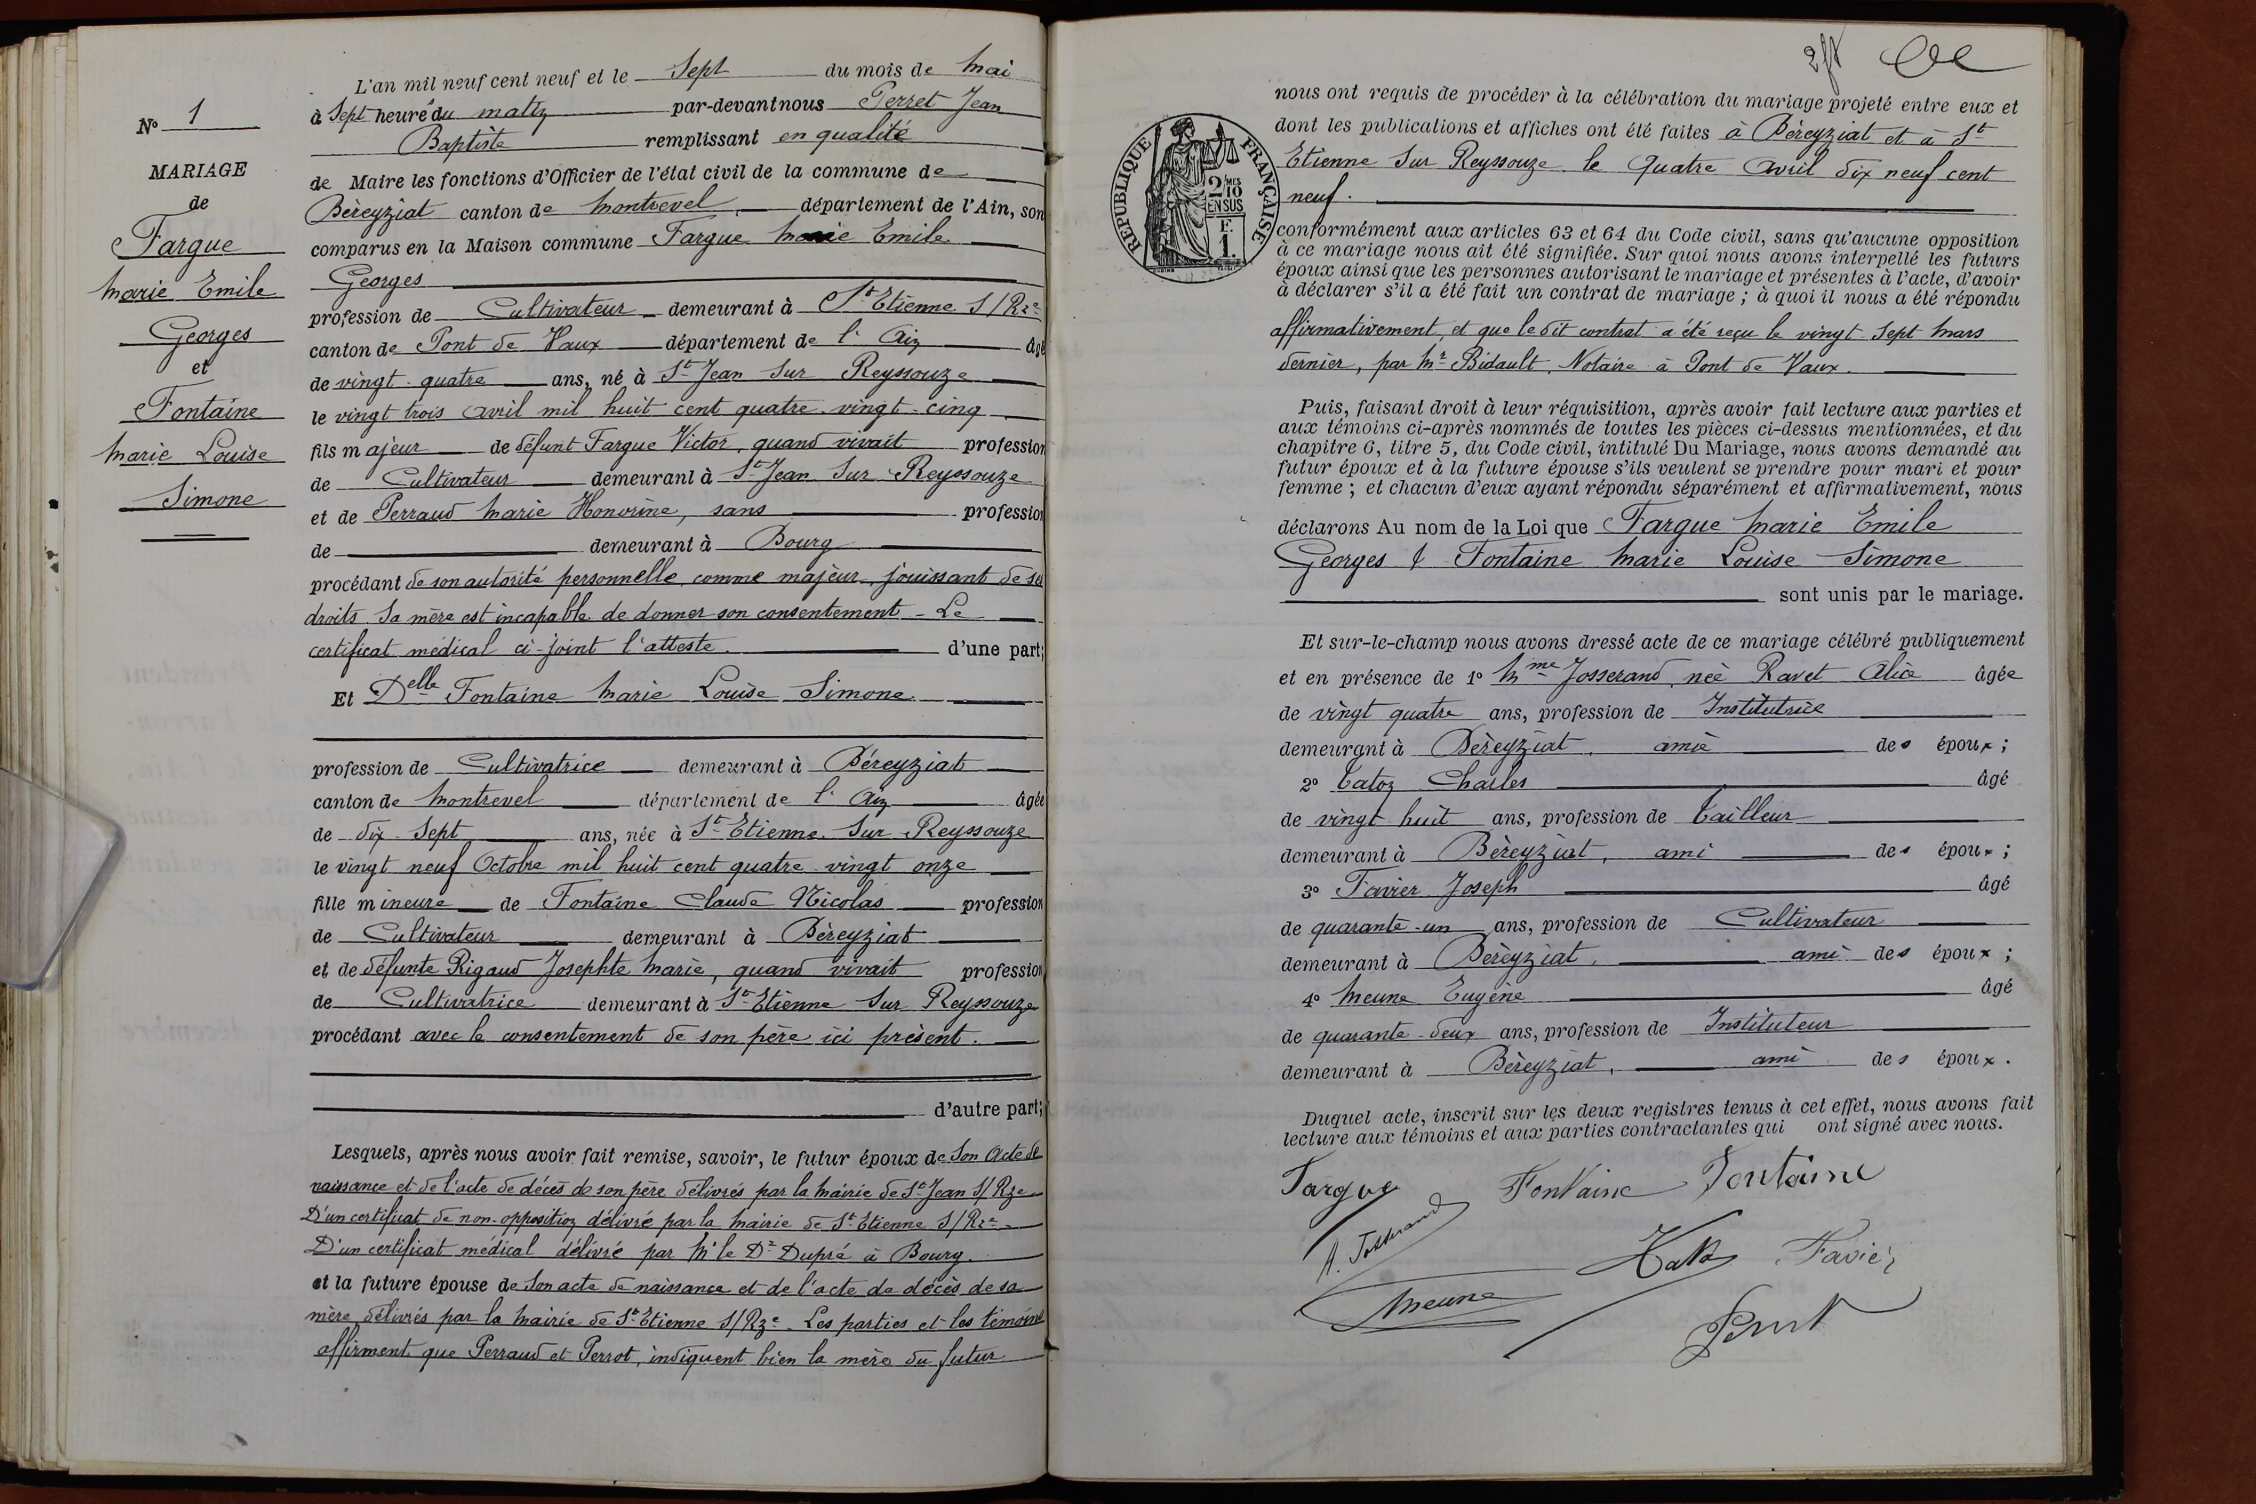 N° 1
MARIAGE
de
Fargue
Marie Emile
Georges
et
Fontaine
Marie Louise
Simone
L'an mil neuf cent neuf et le Sept du mois de Mai
à Sept heure du matin par-devant nous Perret Jean
Baptiste remplissant en qualité
de Maire les fonctions d'Officier de l'état civil de la commune de
Béreyziat canton de Montrevel, département de l'Ain, son
comparus en la Maison commune Fargue Marie Emile
Georges
profession de Cultivateur demeurant à St Etienne S/Rze
canton de Pont de Vaux département de l'Ain âgé
de vingt-quatre ans, né à St Jean sur Reyssouze
le vingt trois Avril mil huit cent quatre-vingt-cinq
fils majeur de défunt Fargue Victor, quand vivait profession
de Cultivateur demeurant à St Jean sur Reyssouze
et de Perraud Marie Honorine, sans profession
de demeurant à Bourg
procédant de son autorité personnelle comme majeur, jouissant de ses
droits. Sa mère est incapable de donner son consentement - Le
certificat médical ci-joint l'atteste. d'une part;
Et Delle Fontaine Marie Louise Simone
profession de Cultivatrice demeurant à Béreyziat
canton de Montrevel département de l'Ain âgée
de dix-sept ans, née à St Etienne sur Reyssouze
le vingt neuf Octobre mil huit cent quatre-vingt onze
fille mineure de Fontaine Claude Nicolas profession
de Cultivateur demeurant à Béreyziat
et de défunte Rigaud Josephte Marie, quand vivait profession
de Cultivatrice demeurant à St Etienne sur Reyssouze
procédant avec le consentement de son père ici présent.
d'autre part;
Lesquels, après nous avoir fait remise, savoir, le futur époux de son acte de
naissance et de l'acte de décès de son père délivrés par la mairie de St Jean S/Rze
D'un certificat de non-opposition délivré par la Mairie de St Etienne S/Rze
D'un certificat médical délivré par Mr le Dr Dupré à Bourg.
et la future épouse de son acte de naissance et de l'acte de décès de sa
mère, délivrés par la Mairie de St Etienne S/Rze. Les parties et les témoins
affirment que Perraud et Perrot, indiquent bien la mère du futur
RÉPUBLIQUE FRANÇAISE
2/10 MES
EN SUS
F.
1.
nous ont requis de procéder à la célébration du mariage projeté entre eux et
dont les publications et affiches ont été faites à Béreyziat et à St
Etienne sur Reyssouze le quatre Avril dix neuf cent
neuf.
conformément aux articles 63 et 64 du Code civil, sans qu'aucune opposition
à ce mariage nous ait été signifiée. Sur quoi nous avons interpellé les futurs
époux ainsi que les personnes autorisant le mariage et présentes à l'acte, d'avoir
à déclarer s'il a été fait un contrat de mariage ; à quoi il nous a été répondu
affirmativement, et que le dit contrat a été reçu le vingt-sept Mars
dernier, par Mr Bidault, Notaire à Pont de Vaux.
Puis, faisant droit à leur réquisition, après avoir fait lecture aux parties et
aux témoins ci-après nommés de toutes les pièces ci-dessus mentionnées, et du
chapitre 6, titre 5, du Code civil, intitulé Du Mariage, nous avons demandé au
futur époux et à la future épouse s'ils veulent se prendre pour mari et pour
femme ; et chacun d'eux ayant répondu séparément et affirmativement, nous
déclarons Au nom de la Loi que Fargue Marie Emile
Georges & Fontaine Marie Louise Simone
sont unis par le mariage.
Et sur-le-champ nous avons dressé acte de ce mariage célébré publiquement
et en présence de 1° Mme Josserand, née Ravet Alice âgée
de vingt quatre ans, profession de Institutrice
demeurant à Béreyziat, amie des époux ;
2° Tatoz Charles âgé
de vingt huit ans, profession de Tailleur
demeurant à Béreyziat, ami des époux ;
3° Favier Joseph âgé
de quarante-un ans, profession de Cultivateur
demeurant à Béreyziat, ami des époux ;
4° Meune Eugène âgé
de quarante-deux ans, profession de Instituteur
demeurant à Béreyziat, ami des époux.
Duquel acte, inscrit sur les deux registres tenus à cet effet, nous avons fait
lecture aux témoins et aux parties contractantes qui ont signé avec nous.
Fargue Fontaine Fontaine
A. Josserand Favier
Meune
Perret